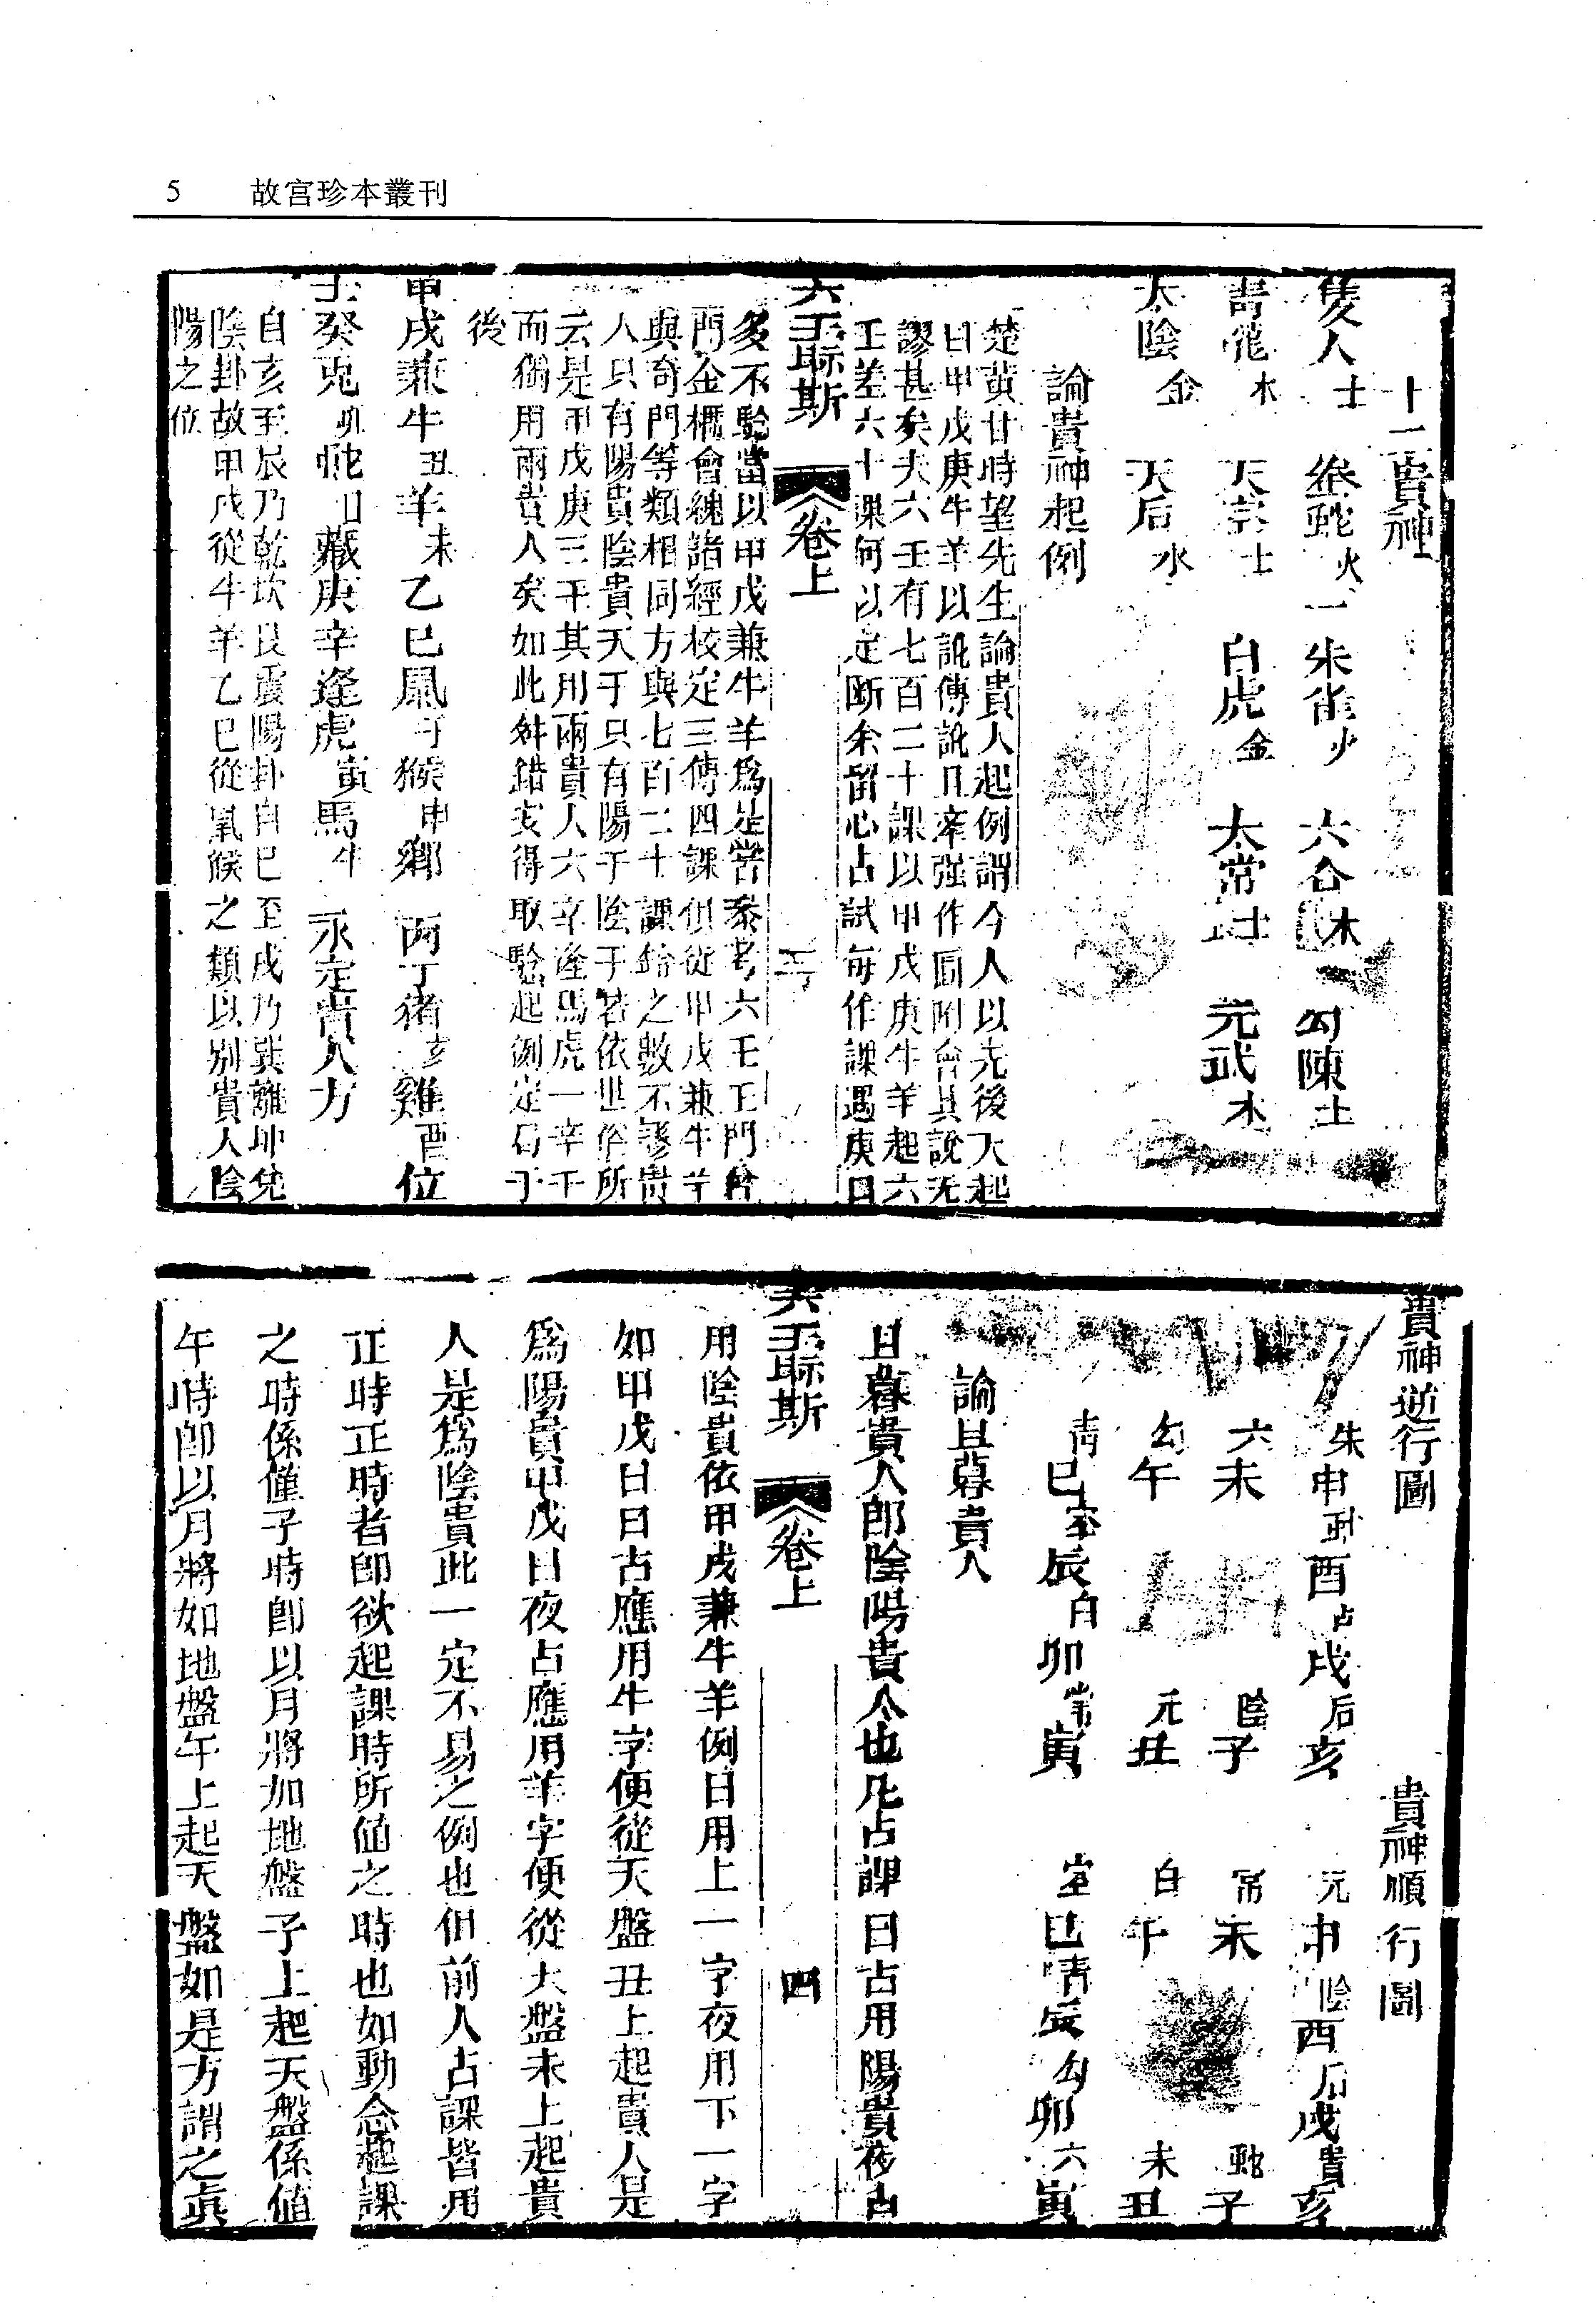 5 故宮珍本叢刊
十二貴神
貴人土 螣蛇火 朱雀火 六合木 勾陳土
青龍木 天空土 白虎金 太常土 元武水
太陰金 天后水
論貴神起例
楚黃廿時望先生論貴人起例謂今人以先後天起
曰甲戊庚牛羊以訛傳訛且牽强作圖附會其說尤
謬甚矣夫六壬有七百二十課以甲戊庚牛羊起六
壬差六十課何以定断余留心占試每作課遇庚日
六壬 斯 卷上 三
多不驗當以甲戊兼牛羊為是嘗叅考六壬玉門會
門金櫃會纔諸經校定三傳四課俱從甲戊兼牛羊
與奇門等類相同方與七百二十課鈐之數不謬貴
人只有陽貴陰貴天干只有陽干陰干若依世俗所
云是甲戊庚三干其用兩貴人六辛逢馬虎一辛干
而獨用兩貴人矣如此舛錯安得取驗起例定后于
後
甲戊兼牛丑羊未乙巳鳳子猴申鄉 丙丁猪亥雞酉位
壬癸兎卯蛇巳藏庚辛逢虎寅馬午 永定貴人方
自亥至辰乃乾坎艮震陽卦自巳至戌乃巽離坤兌
陰卦故甲戊從牛羊乙巳從鼠猴之類以別貴人陰
陽之位
貴神逆行圖 貴神順行圖
朱申蛇酉占戌后亥 元申陰酉后戌貴亥
六未 陰子 常未 蛇子
勾午 元丑 白午 朱丑
青巳空辰白卯常寅 空巳青辰勾卯六寅
論旦暮貴人
旦暮貴人郎陰陽貴人也凡占課日占用陽貴夜占
六壬 斯 卷上 四
用陰貴依甲戊兼牛羊例日用上一字夜用下一字
如甲戊日日占應用牛字便從天盤丑上起貴人是
爲陽貴甲戊日夜占應用羊字便從天盤未上起貴
人是爲陰貴此一定不易之例也但前人占課皆用
正時正時者卽欲起課時所值之時也如動念起課
之時係值子時卽以月將加地盤子上起天盤係值
午時卽以月將如地盤午上起天盤如是方謂之眞